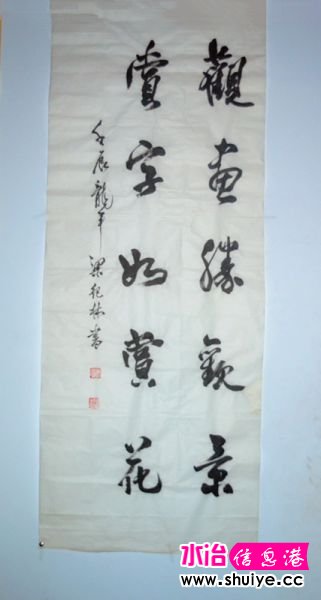 觀畫勝觀景
賞字如賞花
壬辰龍年 梁紀林書
水冶信息港
www.shuiye.cc